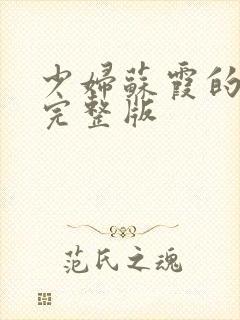 少婦蘇霞的
完整版
范氏之魂